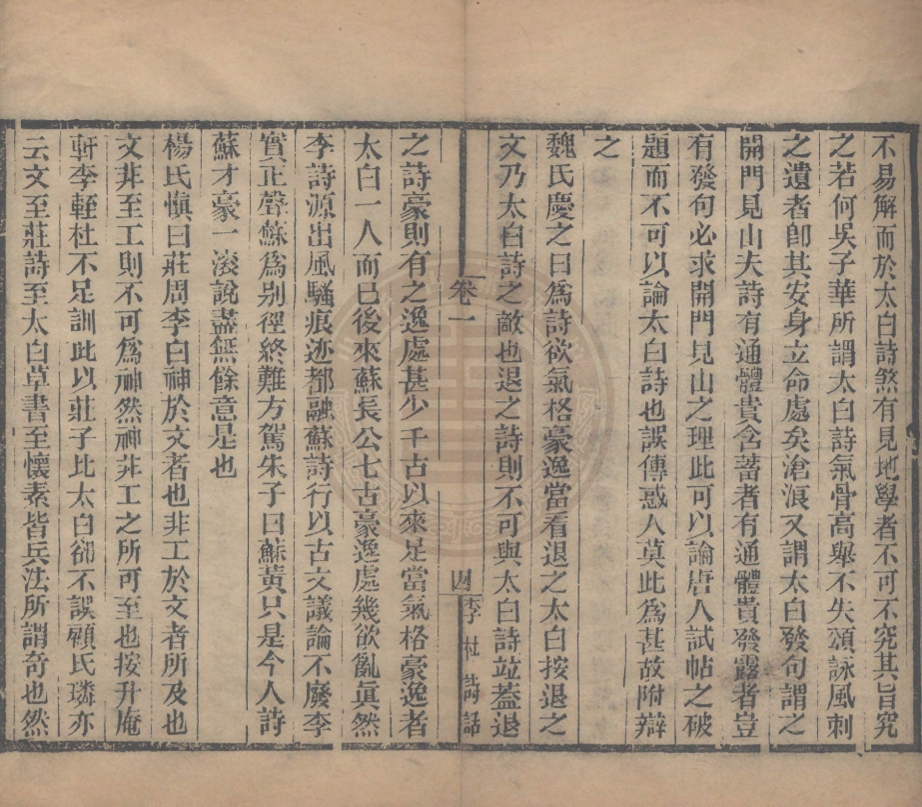 不易解而於太白詩煞有見地學者不可不究其旨究
之若何吳子華所謂太白詩氣骨高舉不失頌詠風刺
之遺者卽其安身立命處矣滄浪又謂太白發句謂之
開門見山夫詩有通體貴含蓄者有通體貴發露者豈
有發句必求開門見山之理此可以論唐人試帖之破
題而不可以論太白詩也誤傳惑人莫此為甚故附辯
之
魏氏慶之曰為詩欲氣格豪逸當看退之太白按退之
文乃太白詩之敵也退之詩則不可與太白詩竝蓋退
卷一
四
李杜詩話
之詩豪則有之逸處甚少千古以來足當氣格豪逸者
太白一人而已後來蘇長公七古豪逸處幾欲亂眞然
李詩源出風騷痕迹都融蘇詩行以古文議論不廢李
實正聲蘇為別徑終難方駕朱子曰蘇黃只是今人詩
蘇才豪一滚說盡無餘意是也
楊氏慎曰莊周李白神於文者也非工於文者所及也
文非至工則不可為神然神非工之所可至也按升庵
軒李輊杜不足訓此以莊子比太白卻不誤顧氏璘亦
云文至莊詩至太白草書至懷素皆兵法所謂奇也然